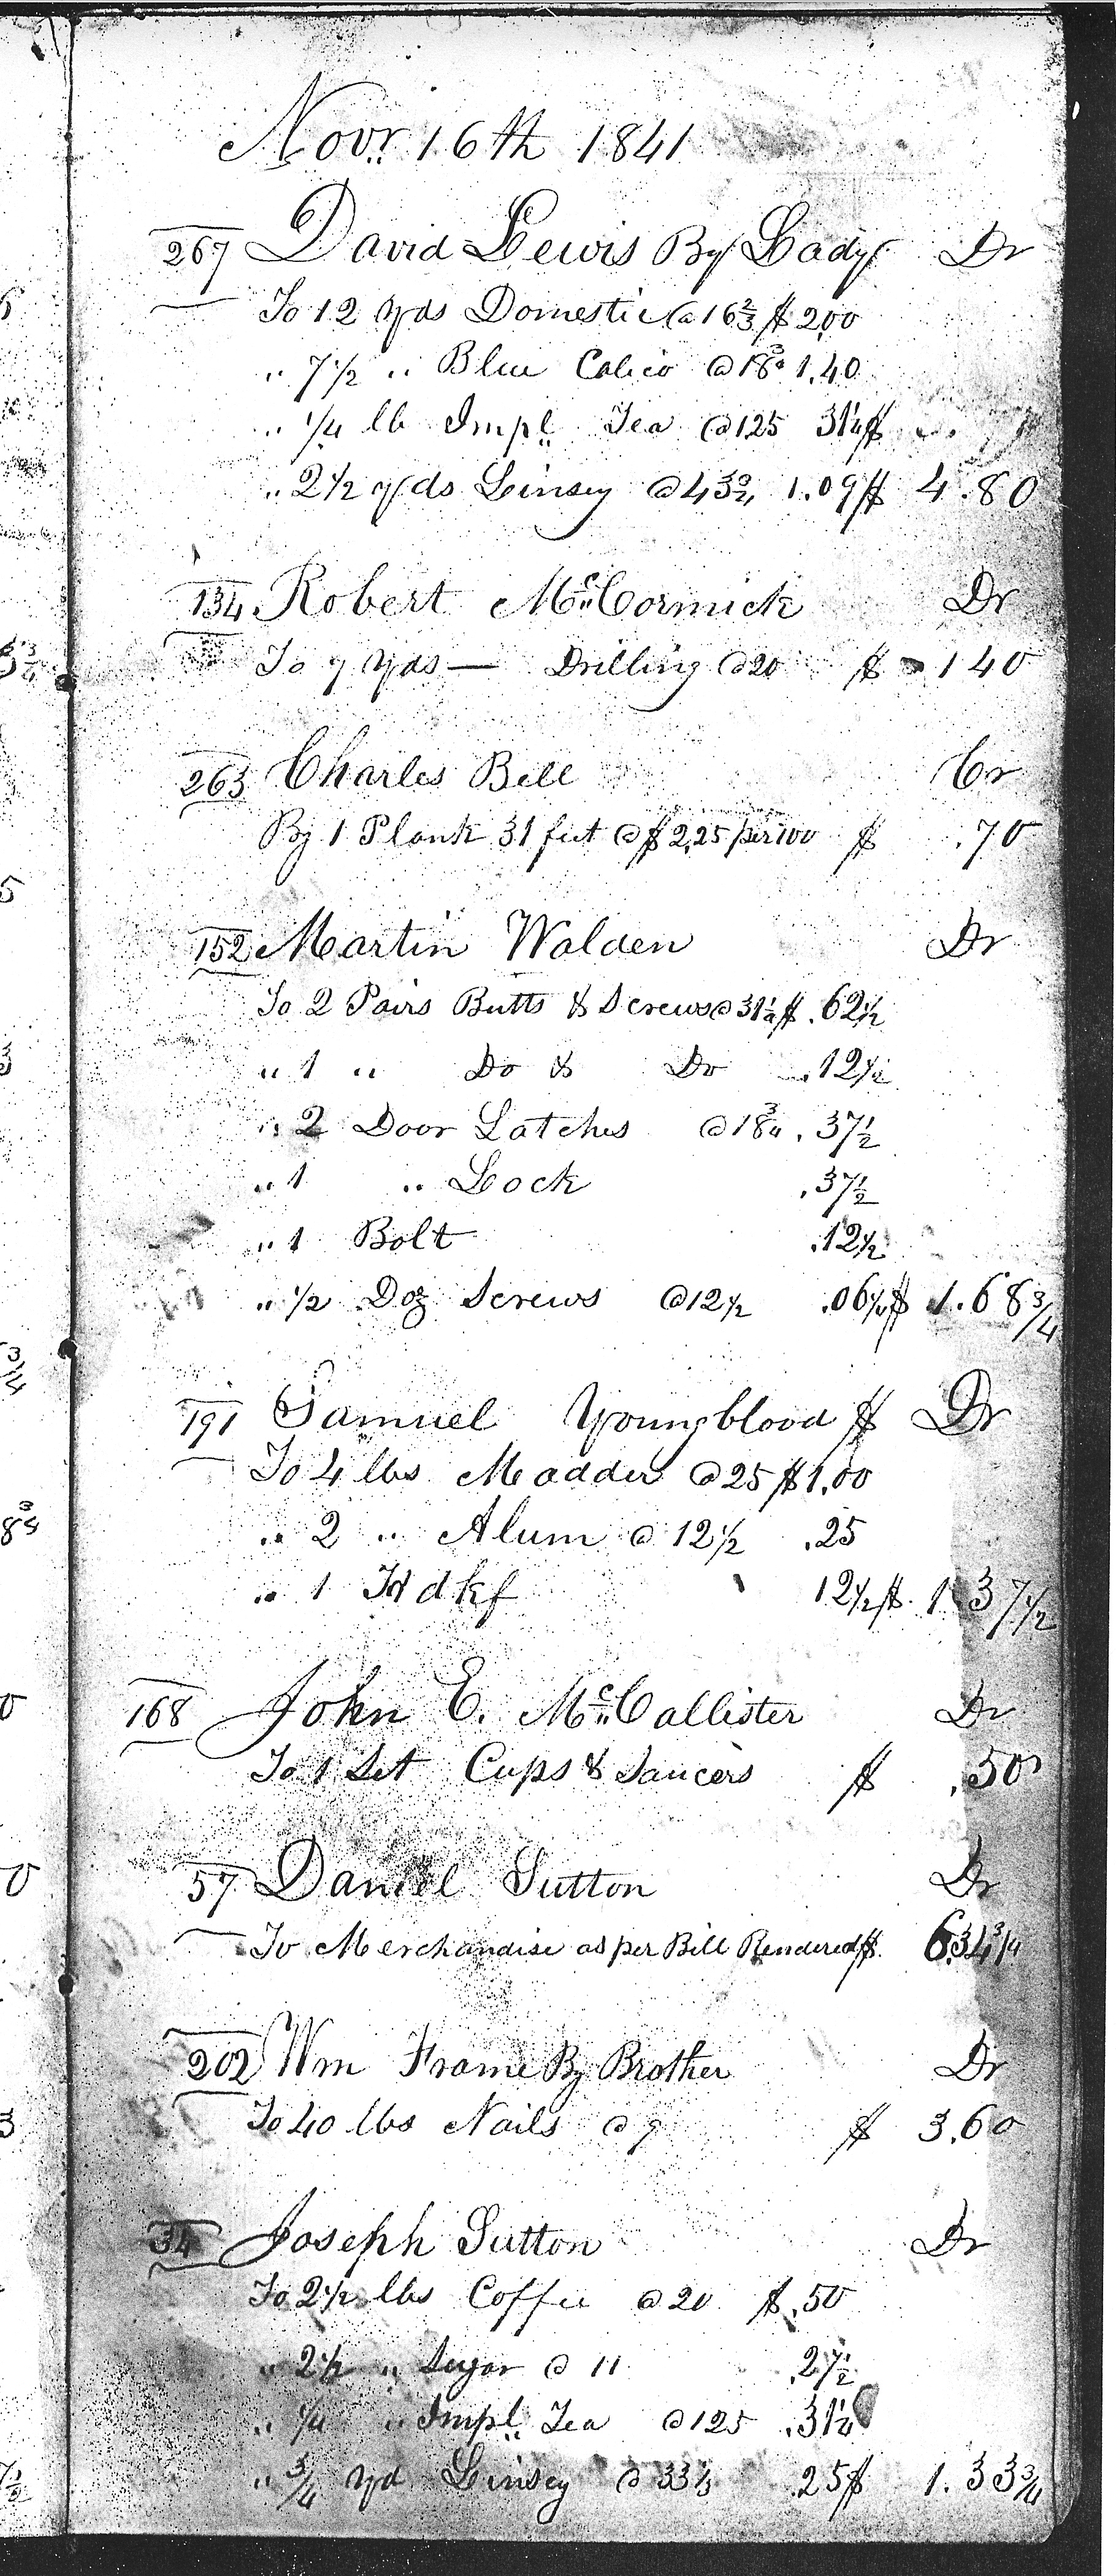 Novr. 16th 1841
267 David Lewis By Lady Dr
To 12 Yds Domestic @ 16 2/3 $ 2,00
" 7 1/2 " Blue Calico @ 18 3/4 1.40
" 1/4 lb Impl. Tea @ 125 31 1/4 $
" 2 1/2 yds Linsey @ 43 3/4 1.09 $ 4.80
134 Robert Mc.Cormick Dr
To 7 Yds — Drilling @ 20 $ 1 40
263 Charles Bell Cr
By 1 Plank 31 feet @ $ 2,25 per 100 $ .70
152 Martin Walden Dr
To 2 Pairs Butts & Screws @ 31 1/4 $ .62 1/2
" 1 " Do & Do .12 1/2
" 2 Door Latches @ 18 3/4 .37 1/2
" 1 " Lock .37 1/2
" 1 Bolt .12 1/2
" 1/2 Doz Screws @ 12 1/2 .06 1/4 $ 1.68 3/4
191 Samuel Youngblood $ Dr
To 4 lbs Madder @ 25 $ 1,00
" 2 " Alum @ 12 1/2 .25
" 1 Hdkf 12 1/2 $ 1 37 1/2
168 John E. Mc.Callister Dr
To 1 Set Cups & Saucers $ .50
57 Daniel Sutton Dr
To Merchandise as per Bill Rendered $ 6.34 3/4
202 Wm Frame By Brother Dr
To 40 lbs Nails @ 9 $ 3.60
34 Joseph Sutton Dr
To 2 1/2 lbs Coffee @ 20 $ .50
" 2 1/2 " Sugar @ 11 .27 1/2
" 1/4 " Impl. Tea @ 125 .31 1/4
" 3/4 Yd Linsey @ 33 1/3 .25 $ 1.33 3/4